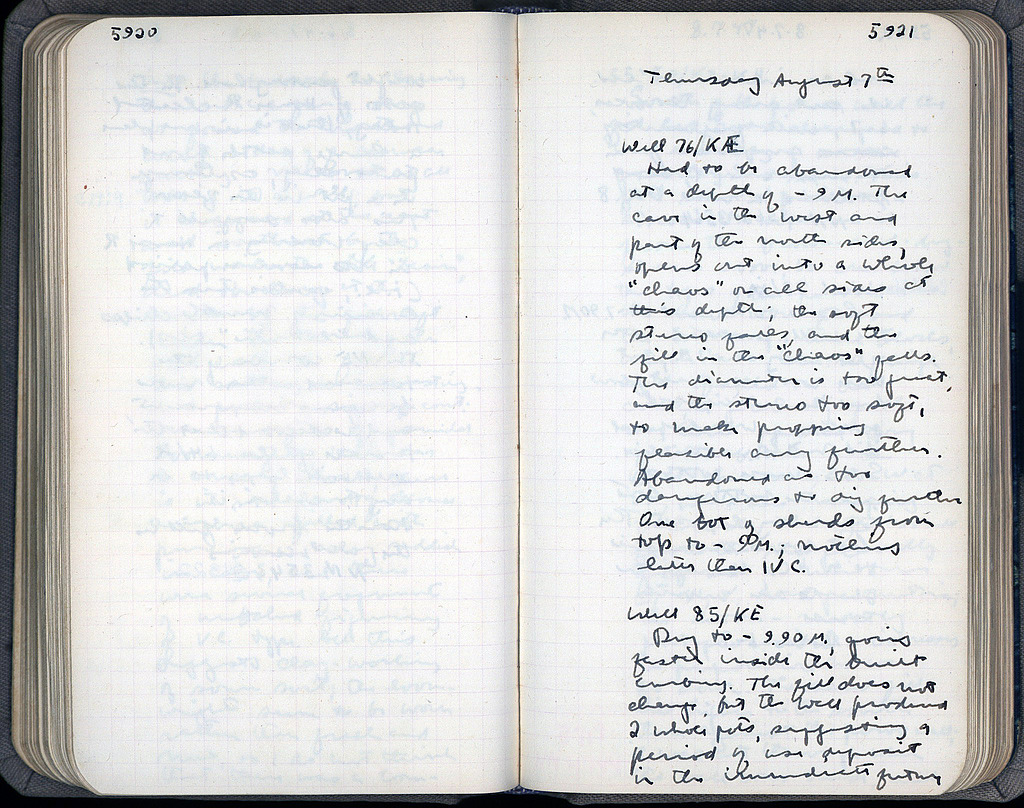 5920
5921
Thursday August 7th
Well 76/KÆ
Had to be abandoned
at a depth of - 9 M. The
cave in the west and
part of the north sides,
opens out into a whole
"chaos" on all sides at
this depth; the soft
stereo falls, and the
fill in the "chaos" falls.
The diameter is too great,
and the stereo too soft,
to make propping
feasible any further.
Abandoned as too
dangerous to dig further
One lot of sherds from
top to - 9 M.; nothing
later than IV C.
Well 85/KE
Dug to - 9.90 M, going
faster inside the built
curbing. The fill does not
change, but the well produced
2 whole pots, suggesting a
period of use deposit
in the immediate future